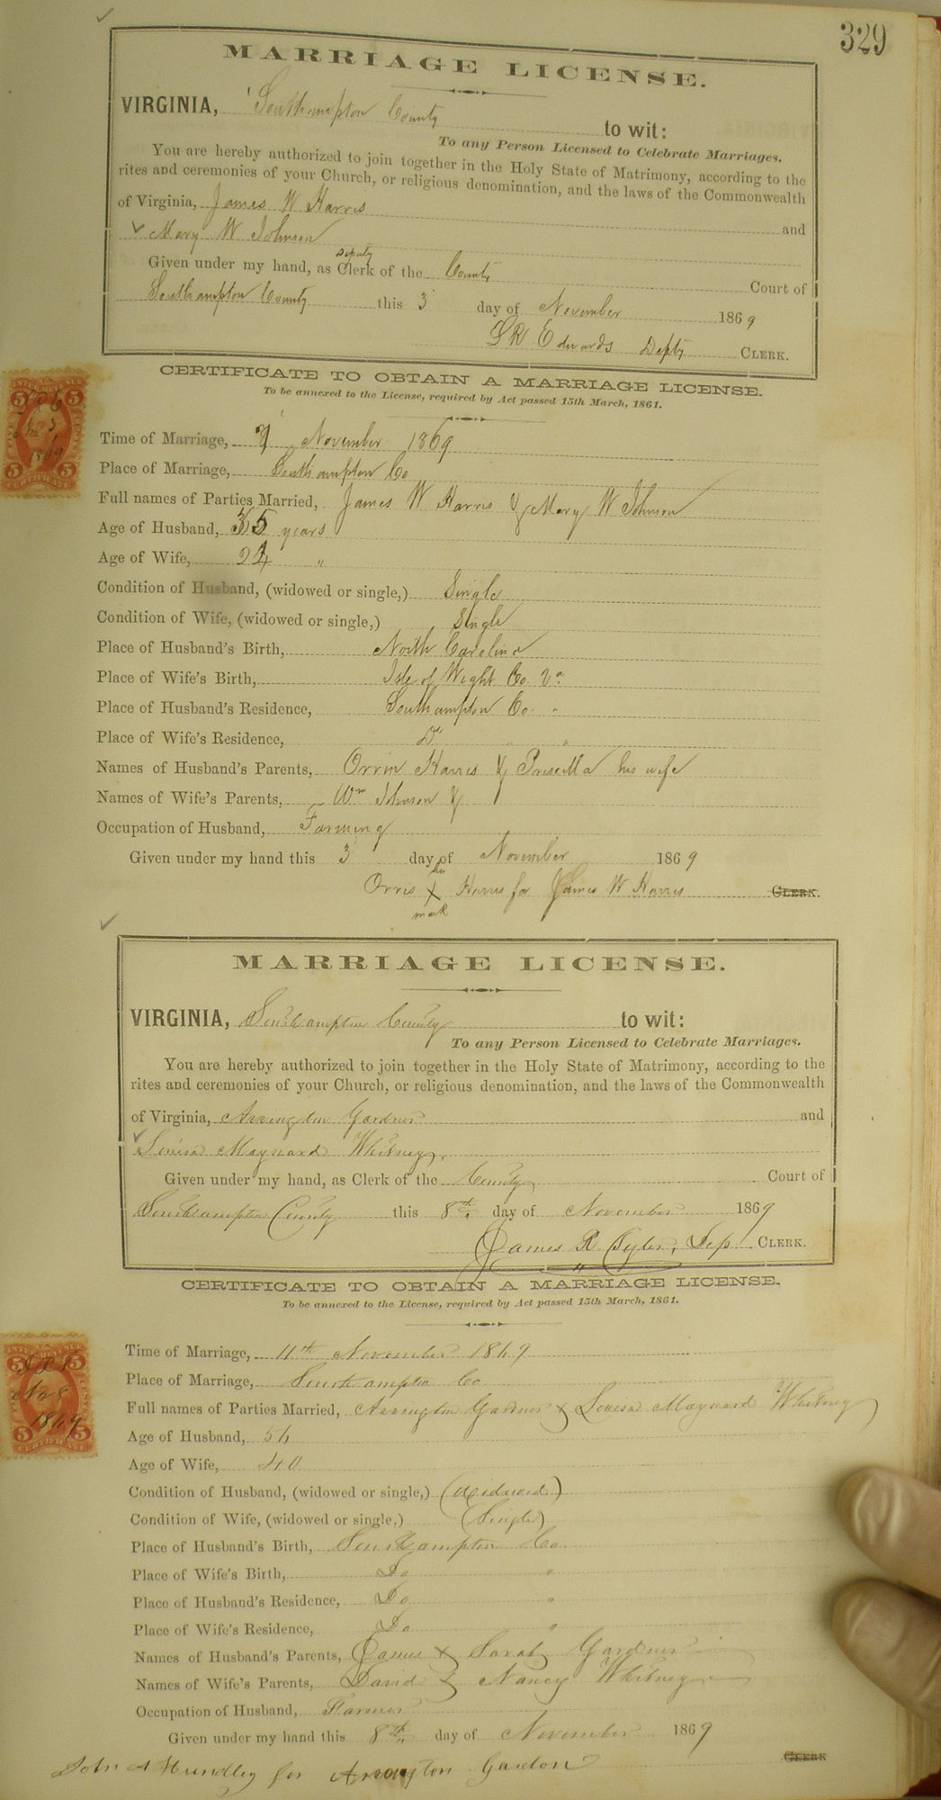 329
MARRIAGE LICENSE.
VIRGINIA, Southampton County to wit:
To any Person Licensed to Celebrate Marriages.
You are hereby authorized to join together in the Holy State of Matrimony, according to the
rites and ceremonies of your Church, or religious denomination, and the laws of the Commonwealth
of Virginia, James W Harris and
Mary W Johnson
Deputy
Given under my hand, as Clerk of the County Court of
Southampton County this 3 day of November 1869
S R Edwards Depty CLERK.
CERTIFICATE TO OBTAIN A MARRIAGE LICENSE.
To be annexed to the License, required by Act passed 15th March, 1861.
Time of Marriage, 7 November 1869
Place of Marriage, Southampton Co
Full names of Parties Married, James W Harris & Mary W Johnson
Age of Husband, 35 years
Age of Wife, 24 "
Condition of Husband, (widowed or single,) Single
Condition of Wife, (widowed or single,) Single
Place of Husband's Birth, North Carolina
Place of Wife's Birth, Isle of Wight Co. Va
Place of Husband's Residence, Southampton Co. "
Place of Wife's Residence, Do "
Names of Husband's Parents, Orrin Harris & Priscilla his wife
Names of Wife's Parents, Wm Johnson &
Occupation of Husband, Farming
Given under my hand this 3 day of November 1869
his
Orris X Harris for James W Harris CLERK.
mark
MARRIAGE LICENSE.
VIRGINIA, Southampton County to wit:
To any Person Licensed to Celebrate Marriages.
You are hereby authorized to join together in the Holy State of Matrimony, according to the
rites and ceremonies of your Church, or religious denomination, and the laws of the Commonwealth
of Virginia, Arrington Gardner and
Louisa Maynard Whitney
Given under my hand, as Clerk of the County Court of
Southampton County this 8th day of November 1869
James R Tyler, Dep CLERK.
CERTIFICATE TO OBTAIN A MARRIAGE LICENSE.
To be annexed to the License, required by Act passed 15th March, 1861.
Time of Marriage, 11th November 1869
Place of Marriage, Southampton Co
Full names of Parties Married, Arrington Gardner & Louisa Maynard Whitney
Age of Husband, 56
Age of Wife, 40
Condition of Husband, (widowed or single,) (Widowed)
Condition of Wife, (widowed or single,) (Single)
Place of Husband's Birth, Southampton Co.
Place of Wife's Birth, Do "
Place of Husband's Residence, Do "
Place of Wife's Residence, Do "
Names of Husband's Parents, James & Sarah Gardner
Names of Wife's Parents, David & Nancy Whitney
Occupation of Husband, Farmer
Given under my hand this 8th day of November 1869
CLERK
John A Hundley for Arrington Gardon